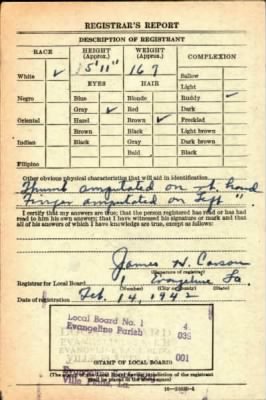 REGISTRAR'S REPORT
DESCRIPTION OF REGISTRANT
RACE HEIGHT (Approx.) WEIGHT (Approx.) COMPLEXION
White ✓ 5' 11" 167 Sallow
EYES HAIR Light
Negro Blue Blonde Ruddy ✓
Gray ✓ Red Dark
Oriental Hazel Brown ✓ Freckled
Brown Black Light brown
Indian Black Gray Dark brown
Bald Black
Filipino
Other obvious physical characteristics that will aid in identification
Thumb amputated on rt. hand
Finger amputated on left "
I certify that my answers are true; that the person registered has read or has had
read to him his own answers; that I have witnessed his signature or mark and that
all of his answers of which I have knowledge are true, except as follows:
James H. Carson
(Signature of registrar)
Registrar for Local Board 1 Evangeline La.
(Number) (City or county) (State)
Date of registration Feb. 14, 1942
Local Board No. 1 4
Evangeline Parish 039
001
Ville Platte, La.
(STAMP OF LOCAL BOARD)
(The stamp of the Local Board having jurisdiction of the registrant
shall be placed in the above space.)